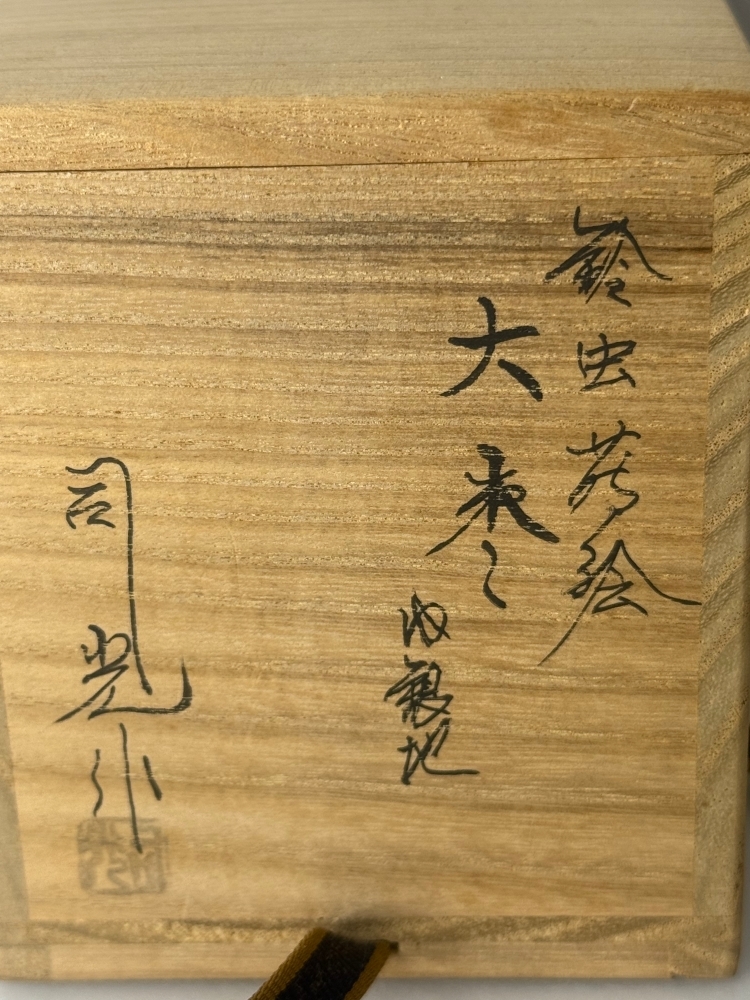 鈴虫蒔絵
大棗
内銀地
司光作